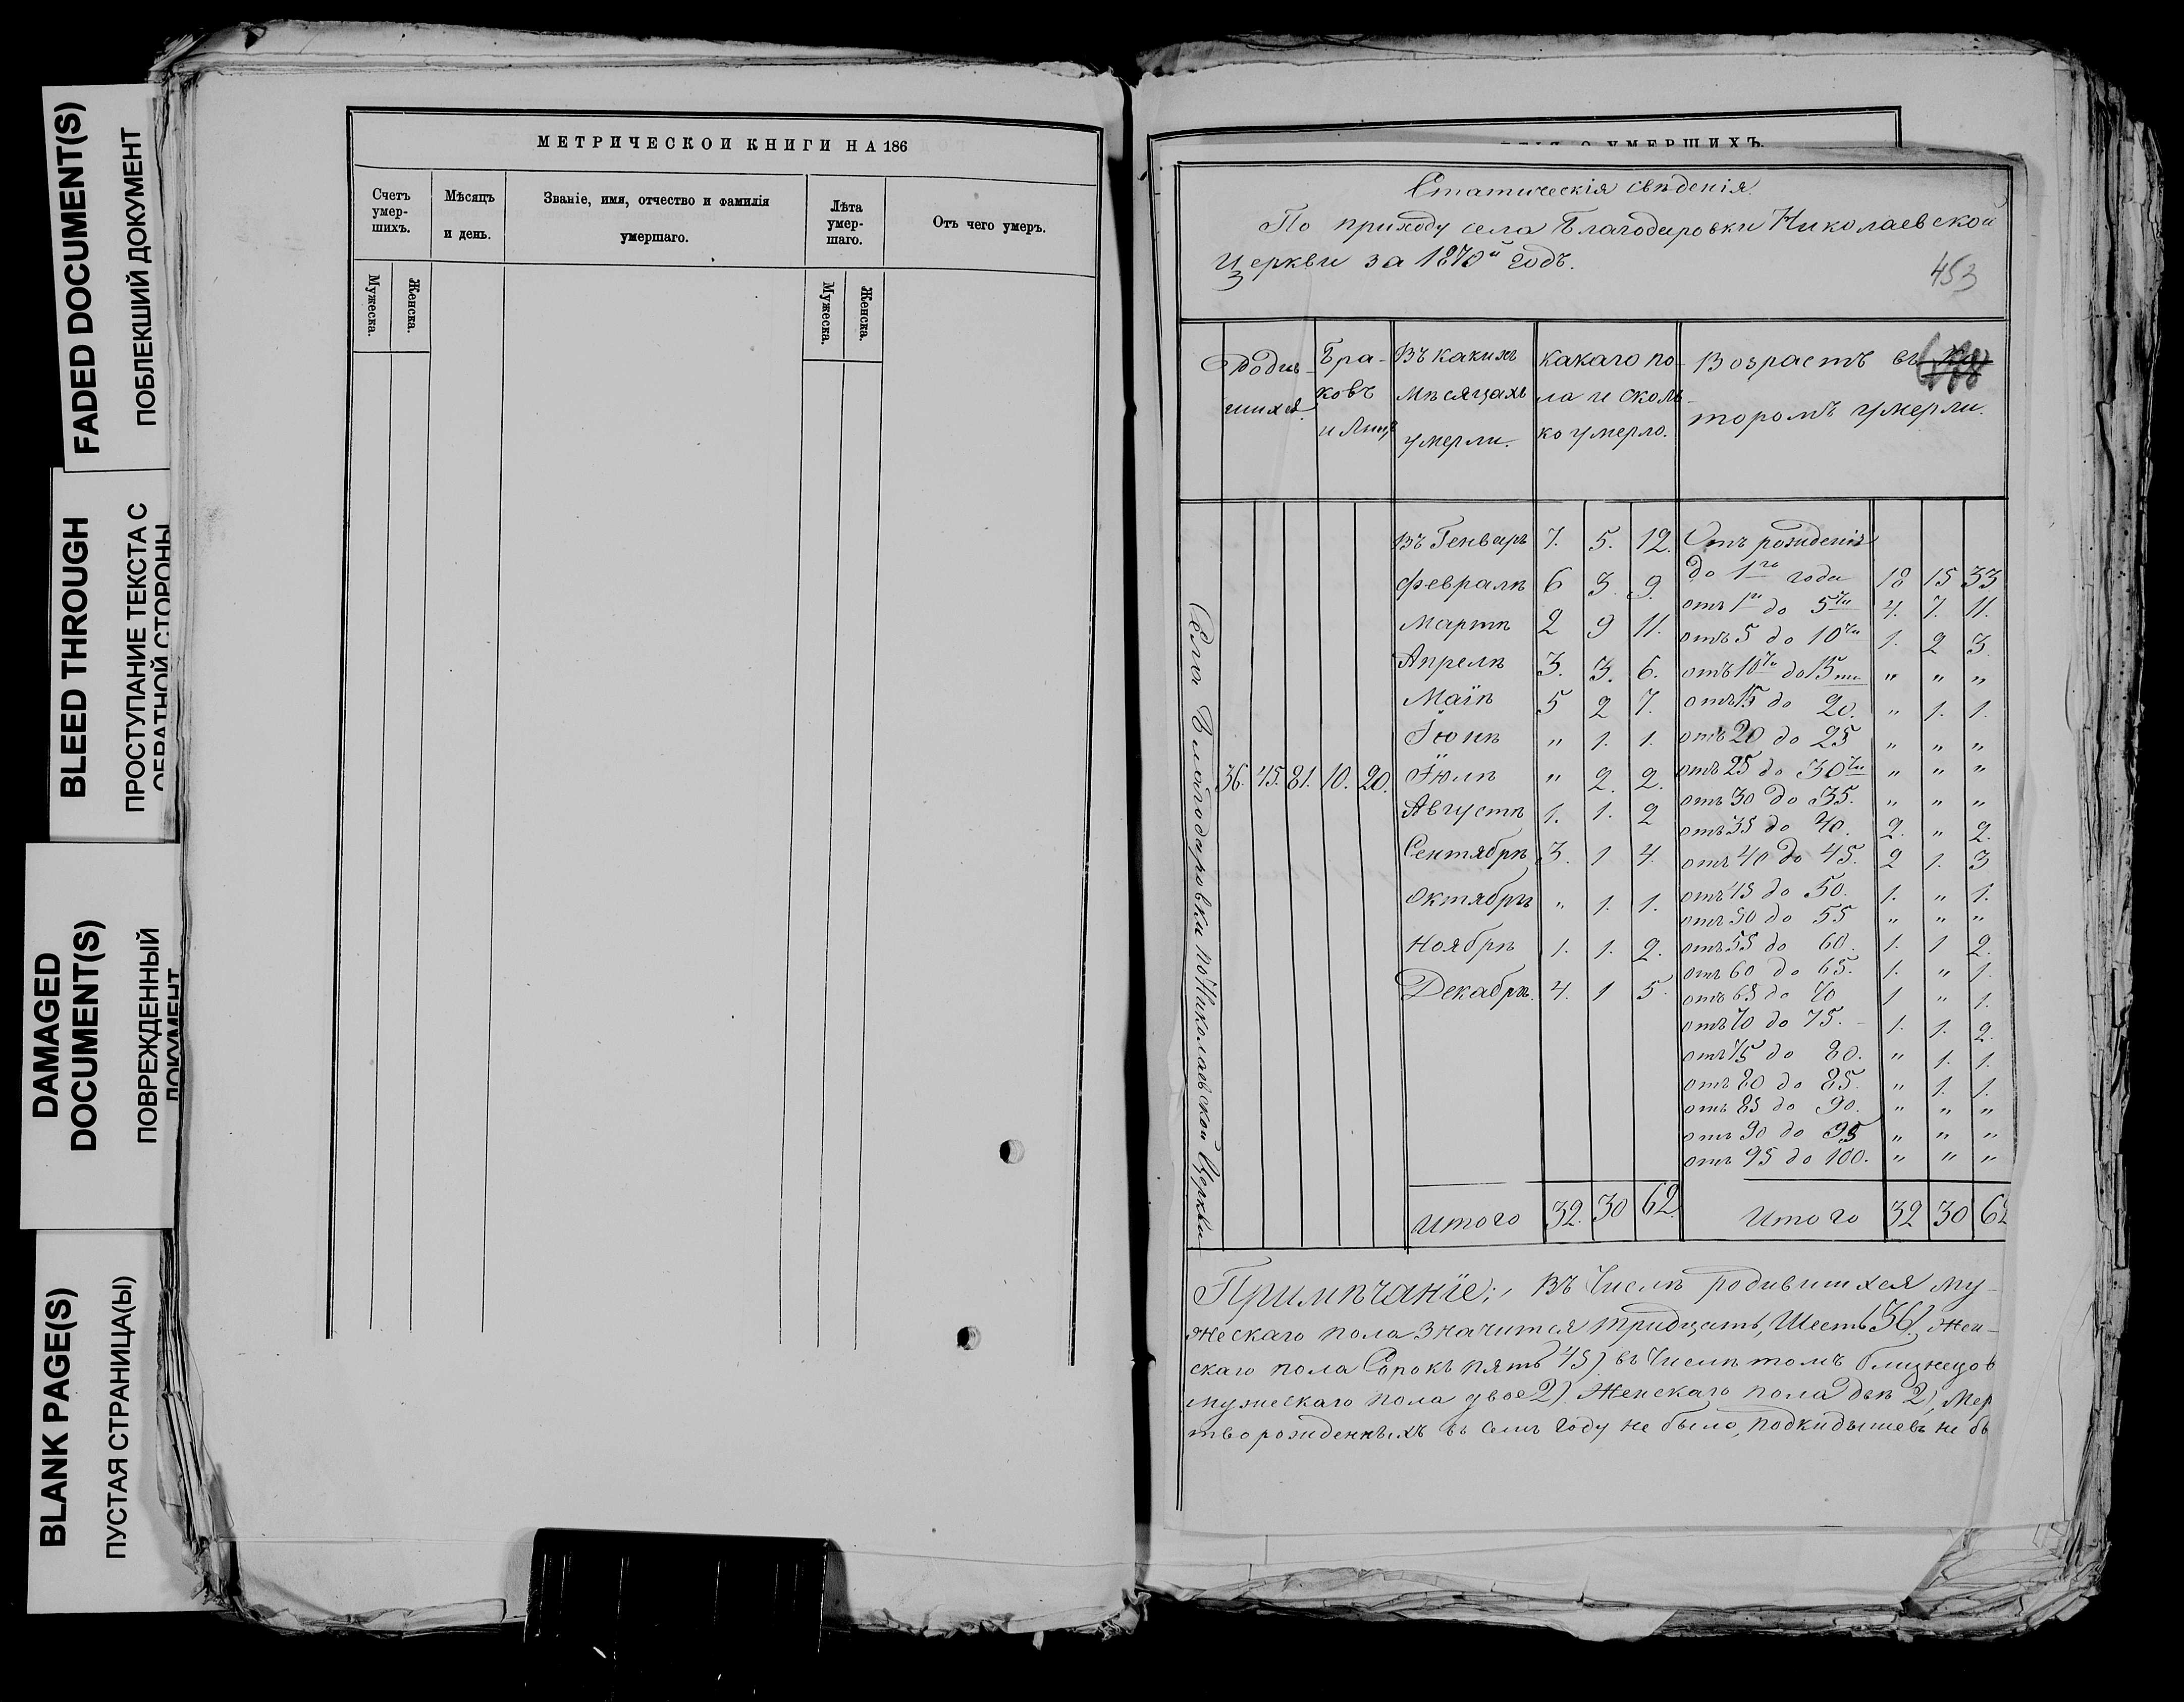 FADED DOCUMENT(S)
ПОБЛЕКШИЙ ДОКУМЕНТ
BLEED THROUGH
ПРОСТУПАНИЕ ТЕКСТА С
ОБРАТНОЙ СТОРОНЫ
DAMAGED
DOCUMENT(S)
ПОВРЕЖДЕННЫЙ
ДОКУМЕНТ
BLANK PAGE(S)
ПУСТАЯ СТРАНИЦА(Ы)
МЕТРИЧЕСКОЙ КНИГИ НА 186
Счетъ умер-шихъ.
Мѣсяцъ и день.
Званіе, имя, отчество и фамилія
умершаго.
Лѣта умер-шаго.
Отъ чего умеръ.
Мужеска.
Женска.
Мужеска.
Женска.
О УМЕРШИХЪ
Статическія свѣденія.
По приходу села Благодаровки Николаевской
Церкви за 1870й годъ.
453
Родив-шихся
Бра-ковъ и лицъ
Въ какихъ мѣсяцахъ умерли.
какаго по-ла и сколь-ко умерло.
Возрастъ въ ко
торомъ умерли.
Села Благодаровки по Николаевской Церкви
36. 45. 81. 10. 20.
Въ Генварѣ 7. 5. 12.
Февралѣ 6 3. 9.
Мартѣ 2 9 11.
Апрелѣ 3. 3. 6.
Маіѣ 5 2 7.
Іюнѣ " 1. 1.
Іюлѣ " 2. 2.
Августѣ 1. 1. 2
Сентябрѣ 3. 1 4.
Октябрѣ " 1. 1.
Ноябрѣ 1. 1. 2.
Декабрѣ. 4. 1 5.
Итого 32. 30 62.
Отъ рожденія
до 1го года 18 15 33
отъ 1го до 5ти 4. 7. 11.
отъ 5 до 10ти 1. 2 3.
отъ 10ти до 15ти " " "
отъ 15 до 20. " 1. 1.
отъ 20 до 25 " " "
отъ 25 до 30ти " " "
отъ 30 до 35. " " "
отъ 35 до 40. 2. " 2.
отъ 40 до 45. 2 1. 3
отъ 45 до 50. 1. " 1.
отъ 50 до 55 " " "
отъ 55 до 60. 1. 1 2.
отъ 60 до 65. 1. " 1.
отъ 65 до 70 1 " 1.
отъ 70 до 75. 1. 1. 2.
отъ 75 до 80. " 1. 1.
отъ 80 до 85. " 1. 1.
отъ 85 до 90. " " "
отъ 90 до 95 " " "
отъ 95 до 100. " " "
Итого 32 30 62
Примѣчаніе; Въ числѣ родившихся му-
жескаго пола значится тридцать, шесть 36), жен-
скаго пола Сорокъ пять 45) въ числѣ томъ близнецов
мужескаго пола двое 2). Женскаго пола двѣ 2), Мер
творожденныхъ въ семъ году не было, подкидышевъ не бы